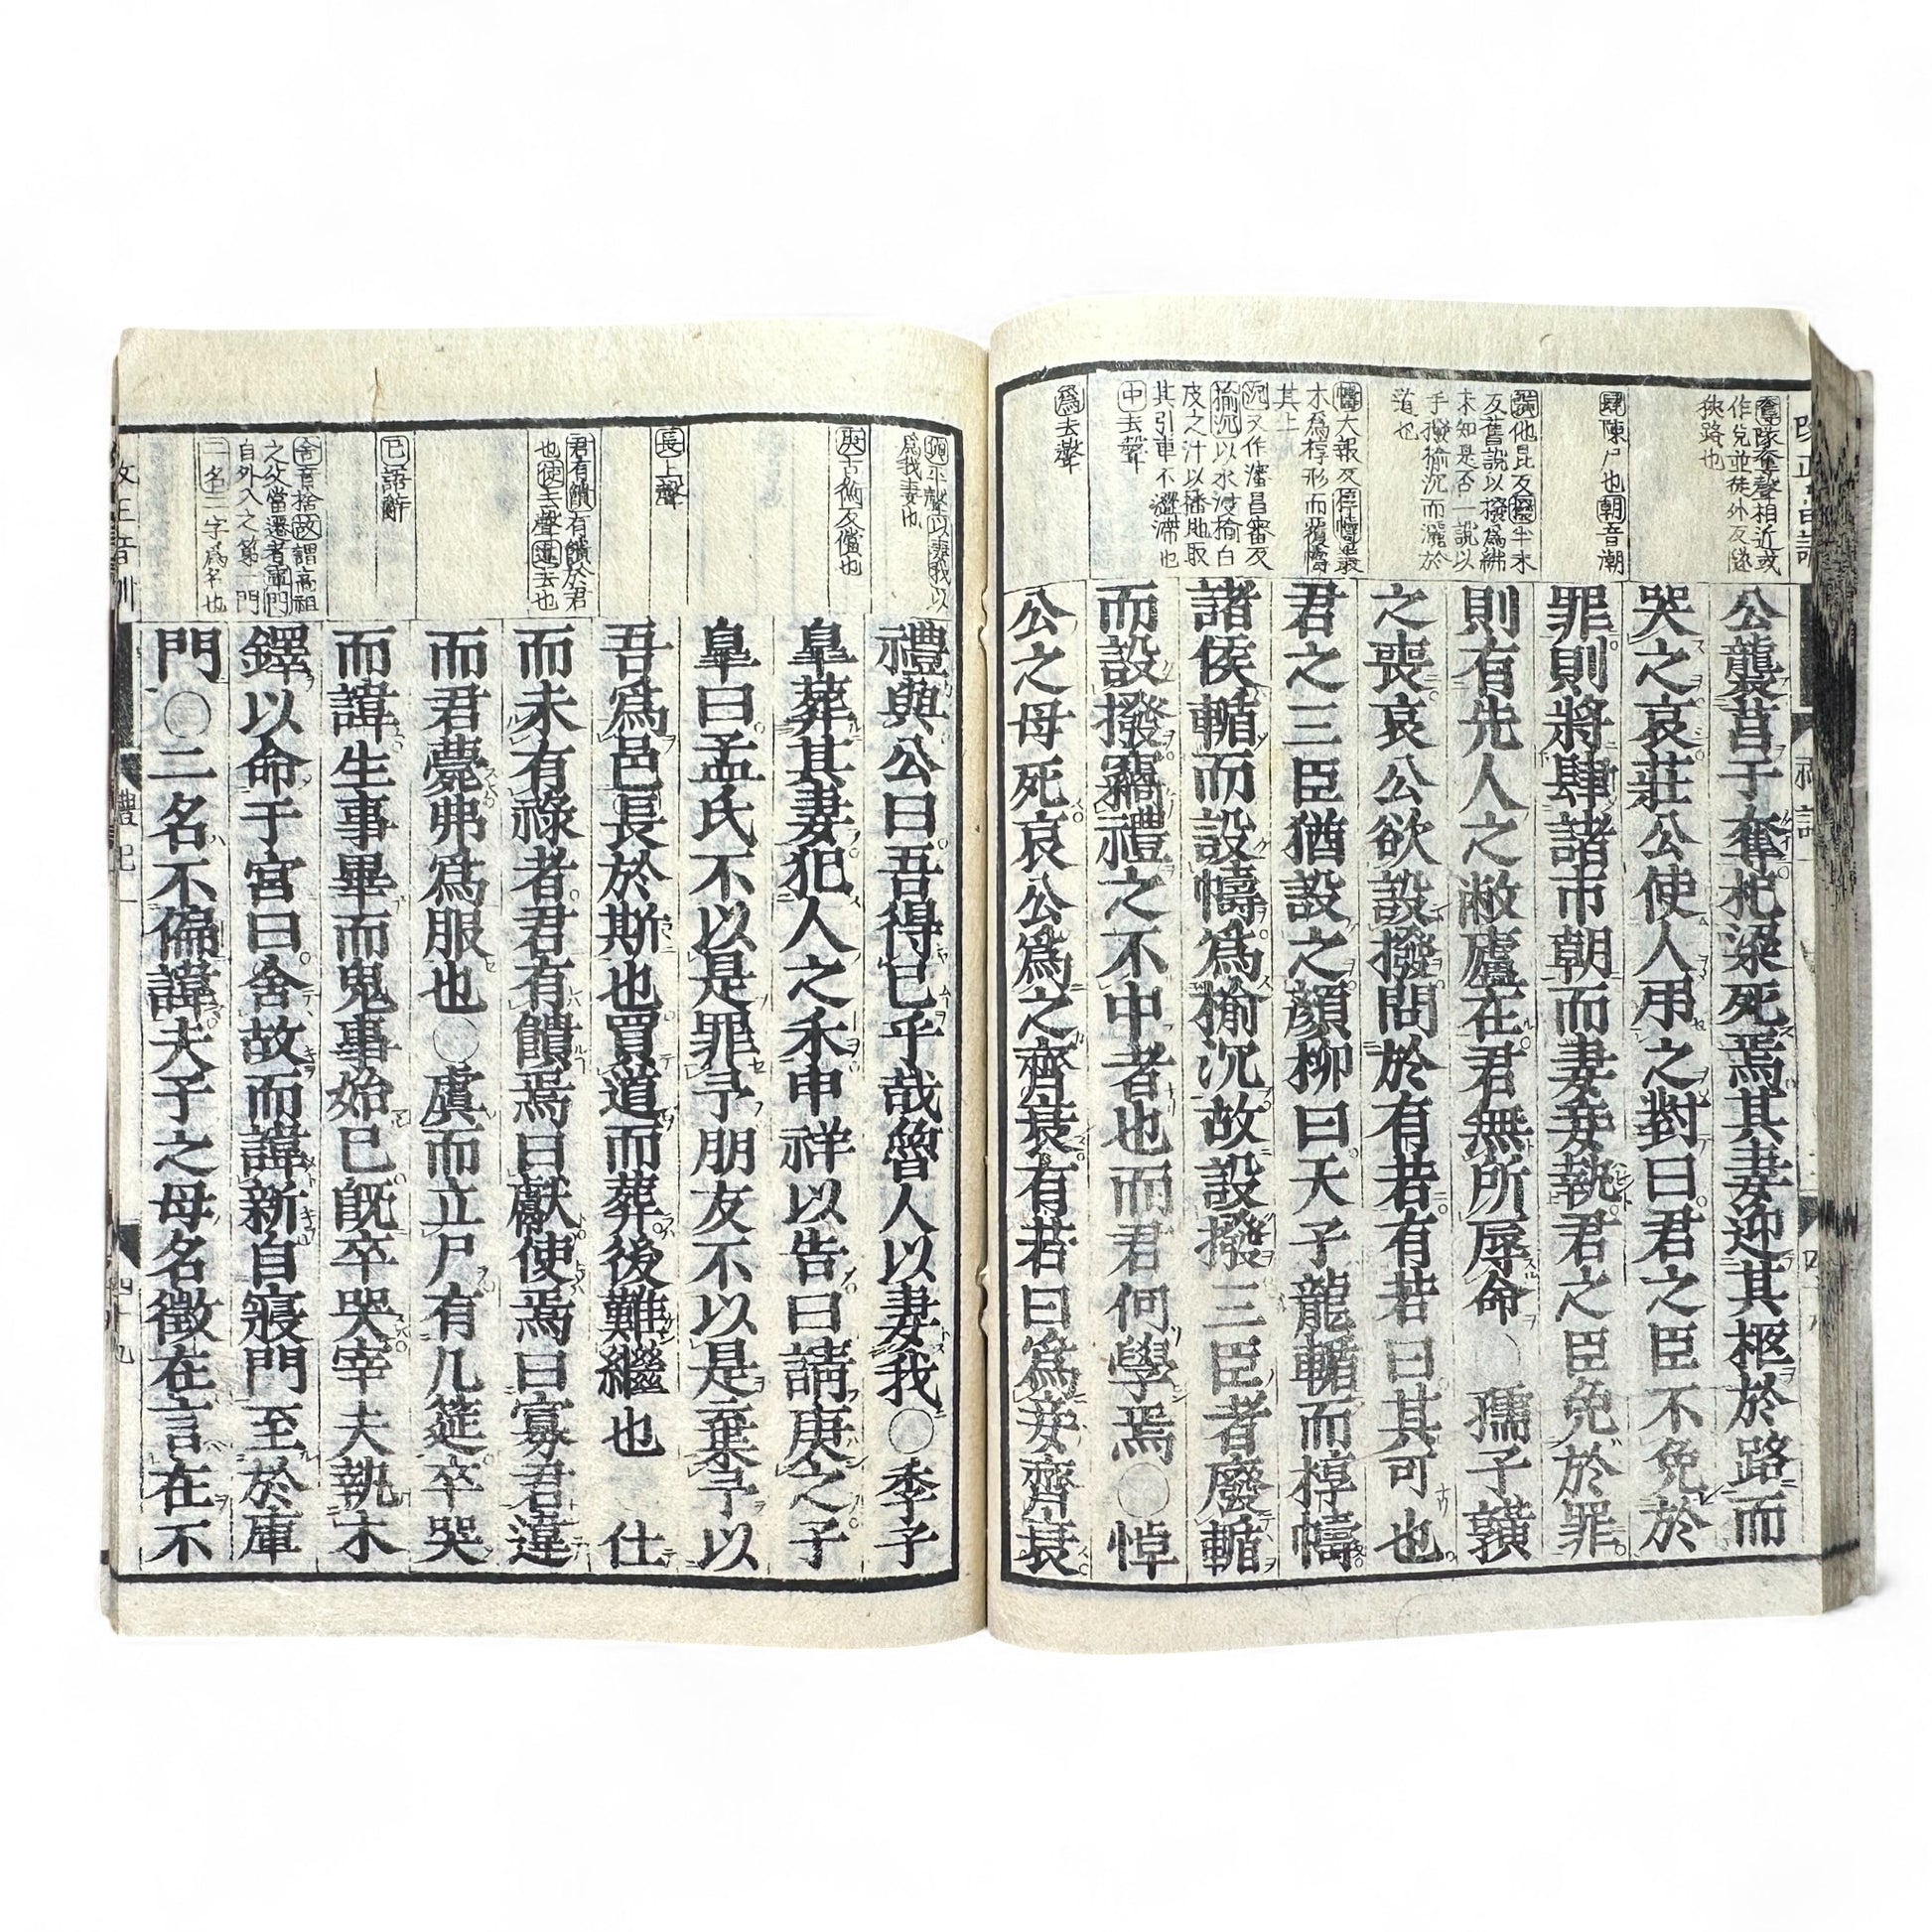 奪隊奪聲相近或
作兌並徒外反隧
狹路也
肆陳尸也朝音潮
䵃他昆反撥半末
反舊說以撥爲紼
未知是否一說以
手撥榆沉而灑於
道也
幬大報反椁幬叢
木爲椁形而覆幬
其上
沉又作瀋昌審反
榆沉以水浸榆白
皮之汁以播地取
其引車不澀滯也
中去聲
爲去聲
公襲莒于奪杞梁死焉其妻迎其柩於路而
哭之哀莊公使人弔之對曰君之臣不免於
罪則將肆諸市朝而妻妾執君之臣免於罪
則有先人之敝廬在君無所辱命○孺子䵃
之喪哀公欲設撥問於有若有若曰其可也
君之三臣猶設之顏柳曰天子龍輴而椁幬
諸侯輴而設幬爲榆沉故設撥三臣者廢輴
而設撥竊禮之不中者也而君何學焉○悼
公之母死哀公爲之齊衰有若曰爲妾齊衰
與平聲以妻我以
爲我妻也
庚古衡反償也
長上聲
君有饋有饋於君
也使去聲違去也
已語辭
舍音捨故謂高祖
之父當遷者庫門
自外入之第一門
二名二字爲名也
禮與公曰吾得已乎哉魯人以妻我○季子
臯葬其妻犯人之禾申祥以告曰請庚之子
臯曰孟氏不以是罪予朋友不以是棄予以
吾爲邑長於斯也買道而葬後難繼也　仕
而未有祿者君有饋焉曰獻使焉曰寡君違
而君薨弗爲服也○虞而立尸有几筵卒哭
而諱生事畢而鬼事始已既卒哭宰夫執木
鐸以命于宮曰舍故而諱新自寢門至於庫
門○二名不偏諱夫子之母名徵在言在不
改正音訓　禮記一　四十九